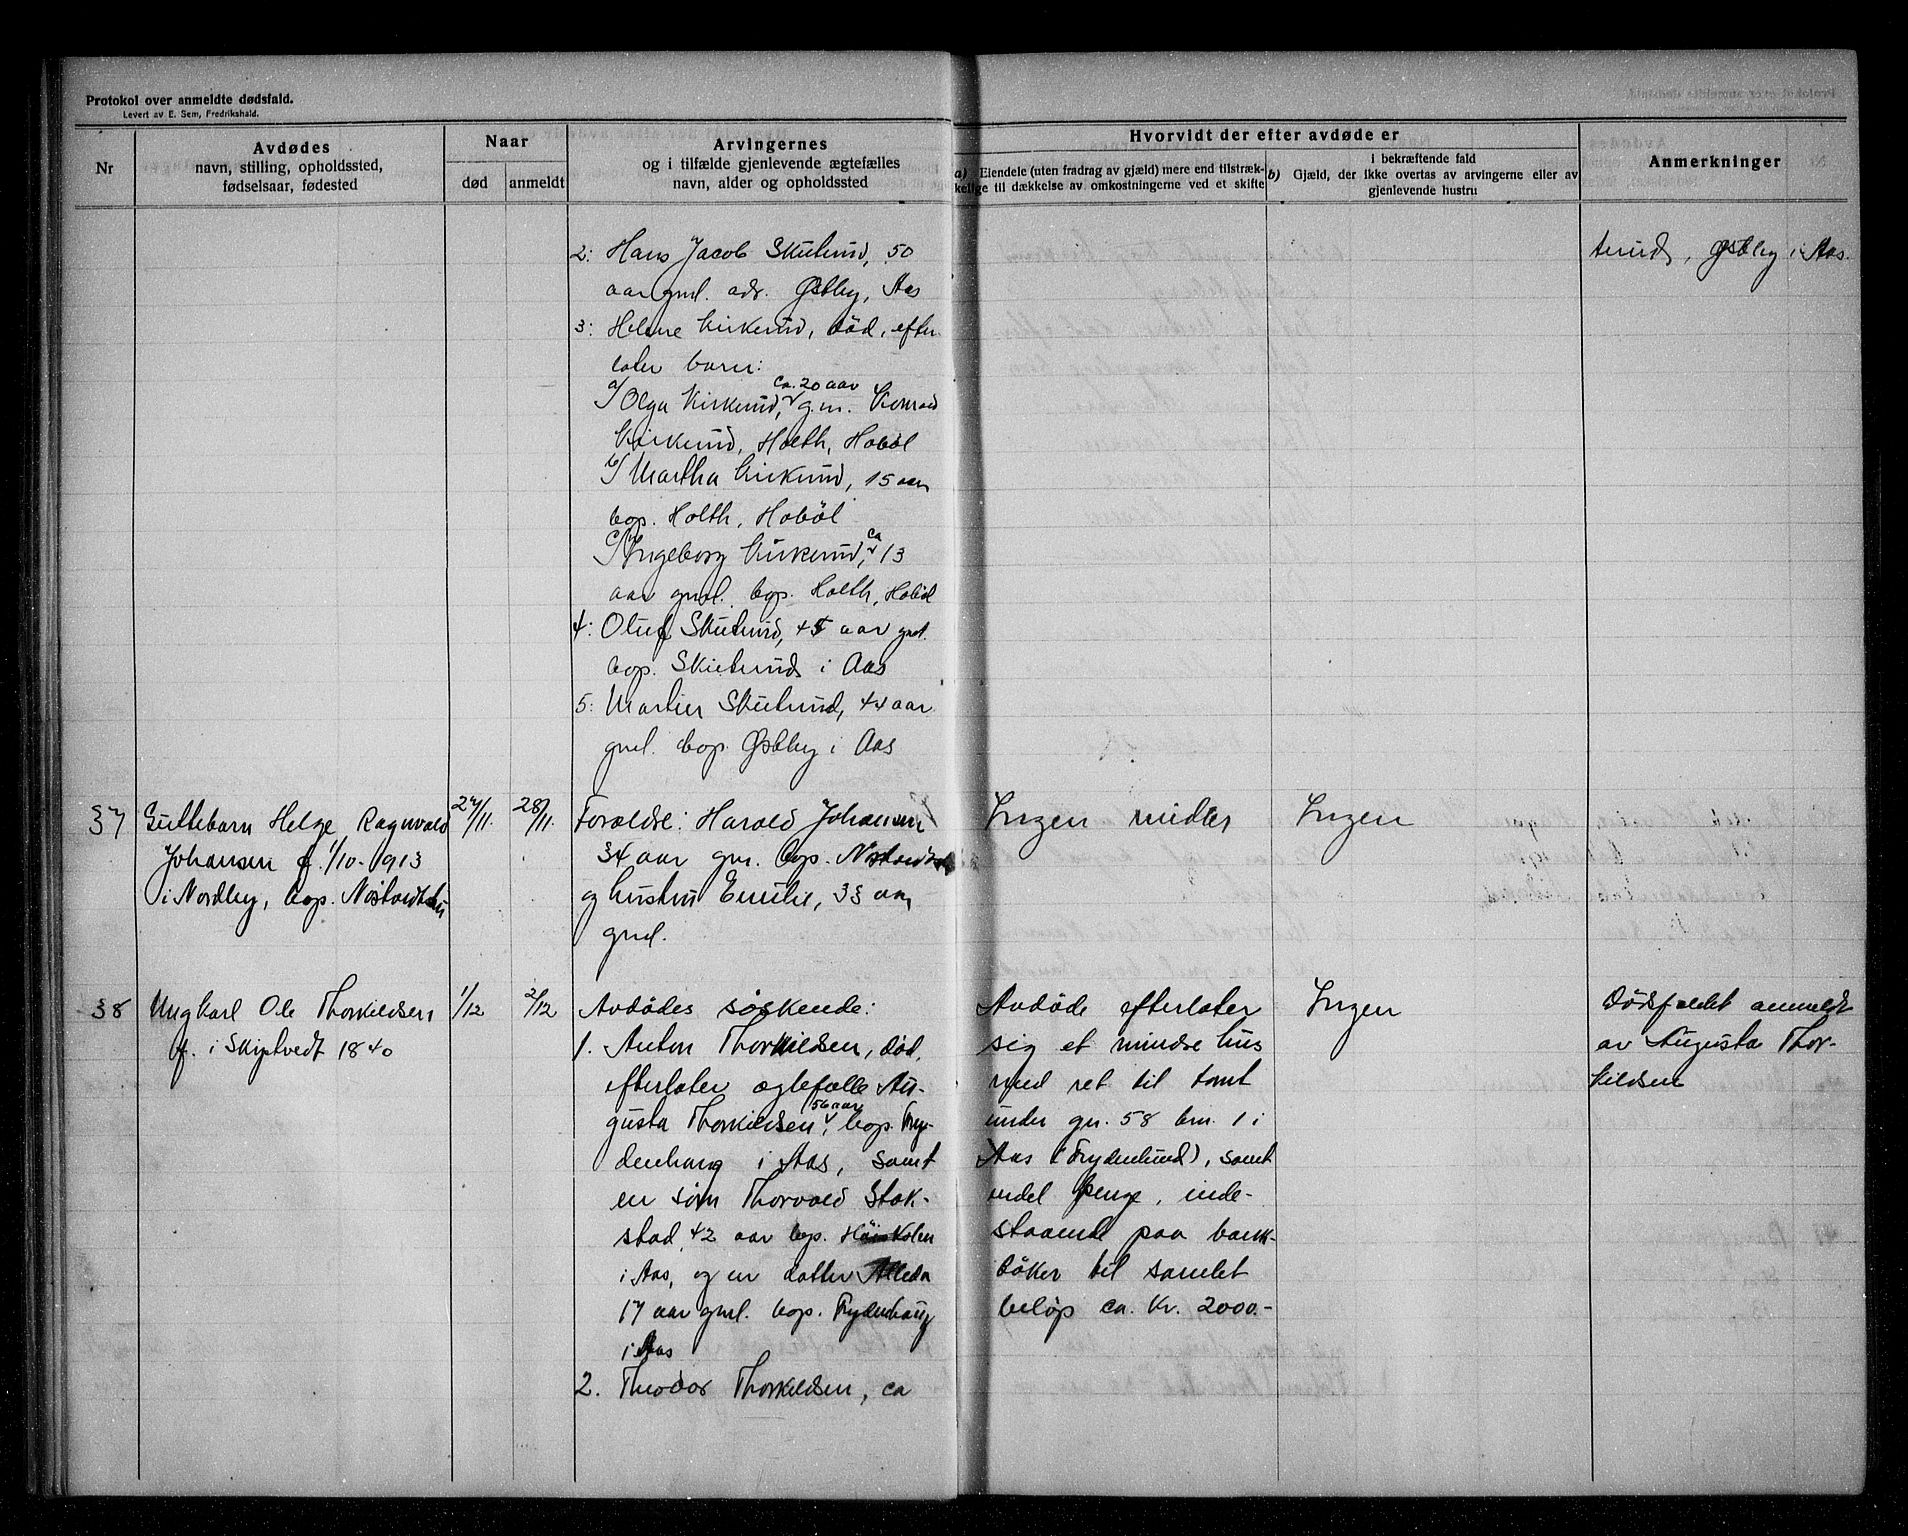 Protokol over anmeldte dødsfald.
Levert av E. Sem, Fredrikshald.
Nr
Avdødes
navn, stilling, opholdssted,
fødselsaar, fødested
Naar
død
anmeldt
Arvingernes
og i tilfælde gjenlevende ægtefælles
navn, alder og opholdssted
Hvorvidt der efter avdøde er
a) Eiendele (uten fradrag av gjæld) mere end tilstræk-
kelige til dækkelse av omkostningerne ved et skifte
b)
i bekræftende fald
Gjæld, der ikke overtas av arvingerne eller av
gjenlevende hustru
Anmerkninger
2: Hans Jacob Skuterud, 50
aar gml. adr. Østby, Aas
3: Helene Kirkerud, död, efter-
later barn:
a/ Olga Kirkerud, ca. 20 aar g.m. Konrad
Kirkerud, Holth, Haböl
b/ Martha Kirkerud, 15 aar
bop. Holth, Haböl
c/ Ingeborg Kirkerud, ca 13
aar gml. bop. Holth, Haböl
4: Oluf Skuterud, 45 aar gml.
bop. Skuterud i Aas
5: Martin Skuterud, 44 aar
gml. bop. Østby i Aas
terud, Østby i Aas.
37
Guttebarn Helge Ragnvald
Johansen f. 1/10-1913
i Nordby, bop.
27/11.
28/11.
Foreldre: Harald Johansen
34 aar gm. bop.
og hustru Emilie, 33 aar
gml.
Ingen midler
Ingen
38
Ungkarl Ole Thorkildsen
f. i Skiptvedt 1840
1/12
2/12
Avdödes söskende:
1. Anton Thorkildsen, död,
efterlater egtefelle Au-
gusta Thorkildsen, 56 aar bop. Fry-
denhaug i Aas, samt
en sön Thorvald Stok-
stad, 42 aar bop. Höiskolen
i Aas, og en datter
17 aar gml. bop. Frydenhaug
i Aas
2. Theodor Thorkildsen, ca
Avdöde efterlater
sig et mindre hus
med ret til tomt
under gn. 58 bn. 1 i
Aas (Frydenlund), samt
endel penge, inde-
staaende paa bank-
böker til samlet
belöp ca. Kr. 2000.-
Ingen
Dödsfaldet anmeldt
av Augusta Thor-
kildsen